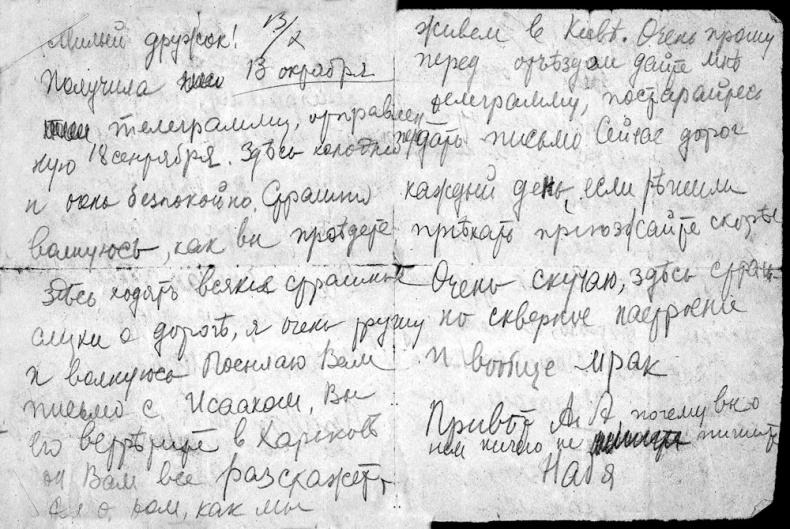 Милый дружок! 13/X
Получила 13 октября
телеграмму, отправлен-
ную 18 сентября. Здѣсь холодно
и очень безпокойно. Страшно
волнуюсь, как вы проѣдете
Здѣсь ходятъ всякіе страшные
слухи о дорогѣ, я очень грущу
и волнуюсь Посылаю Вам
письмо с Исааком, Вы
его встрѣтите в Харьковѣ
он Вам все разскажет,
о том, как мы
живем в Кіевѣ. Очень прошу
перед отъѣздом дайте мнѣ
телеграмму, постарайтесь
передать письмо Сейчас дорог
каждый день, если рѣшили
пріѣхать пріѣзжайте скорѣе
Очень скучаю, здѣсь страш-
но скверное настроеніе
и вообще мрак
Привѣт А. А почему вы о
нем ничего не пишите
Надя